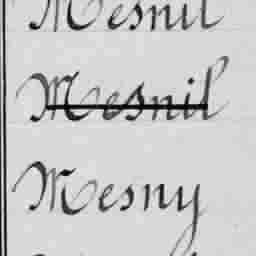 Mesnil
Mesnil
Mesny